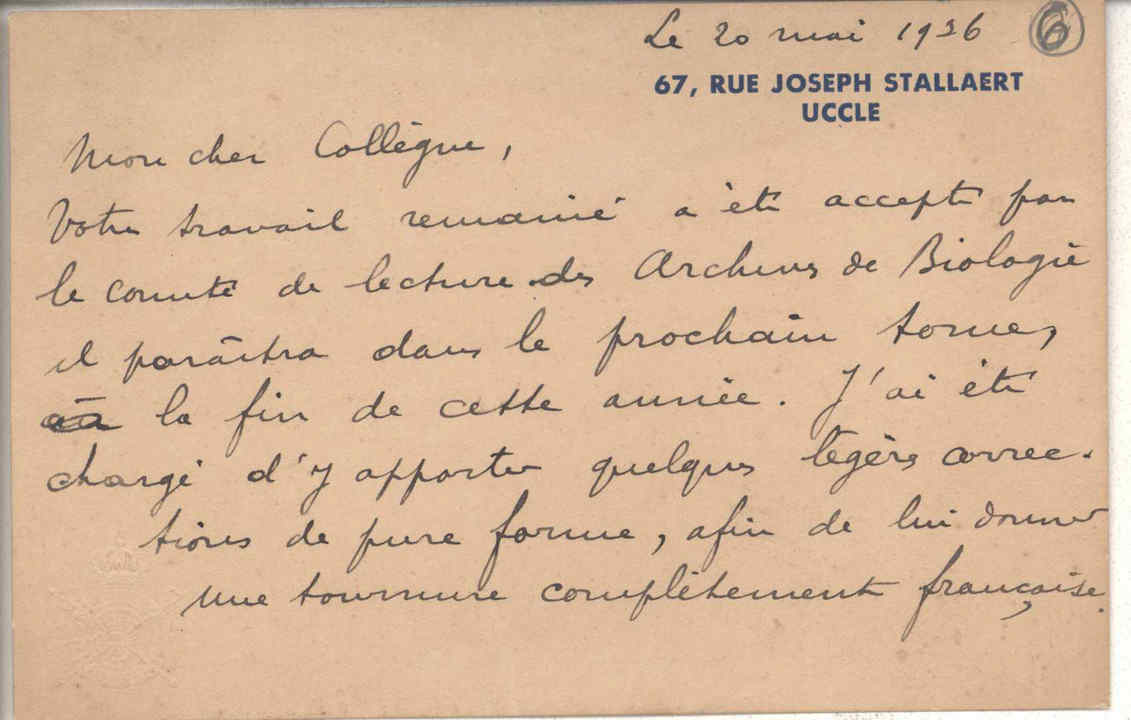 Le 20 mai 1936
6
67, RUE JOSEPH STALLAERT
UCCLE
Mon cher Collègue,
Votre travail remanié a été accepté par
le comité de lecture des Archives de Biologie
il paraîtra dans le prochain tome,
à la fin de cette année. J'ai été
chargé d'y apporter quelques légères correc-
tions de pure forme, afin de lui donner
une tournure complètement française.